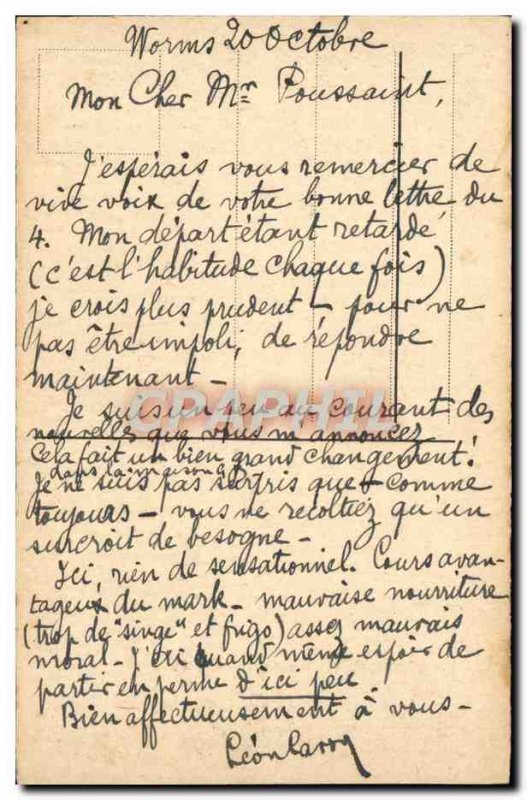 Worms 20 Octobre
Mon Cher Mr Poussaint,
J'espérais vous remercier de
vive voix de votre bonne lettre du
4. Mon départ étant retardé
(c'est l'habitude chaque fois)
je crois plus prudent - pour ne
pas être impoli, de répondre
maintenant -
Je suis un peu au courant des
nouvelles que vous m'annoncez
Cela fait un bien grand changement!
dans la maison
Je ne suis pas surpris que - comme
toujours - vous ne récoltiez qu'un
surcroit de besogne -
Ici, rien de sensationnel. Cours avan-
tageux du mark - mauvaise nourriture
(trop de "singe" et frigo) assez mauvais
moral - J'ai quand même espoir de
partir en perme d'ici peu
Bien affectueusement à vous -
Léon
CPAPHIL